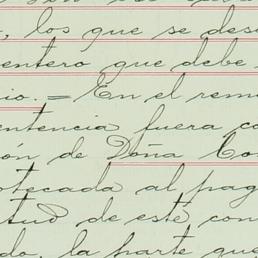 , los que se des
entero que debe
io. = En el rem
entencia fuera co
ón de Doña Co
otecada al pag
itud de este con
do, la parte que